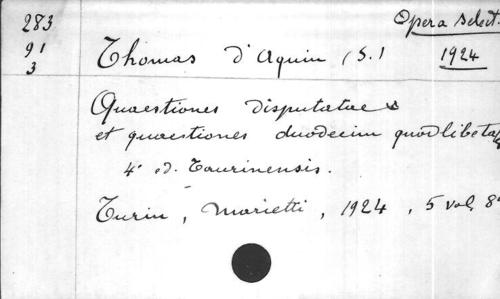 283 Opera select.
91 Thomas d'Aquin (S.) 1924
3
Quaestiones disputatae
et quaestiones duodecim quodlibetal
4ª ed. Taurinensis.
Turin, Marietti, 1924, 5 vol, 8º